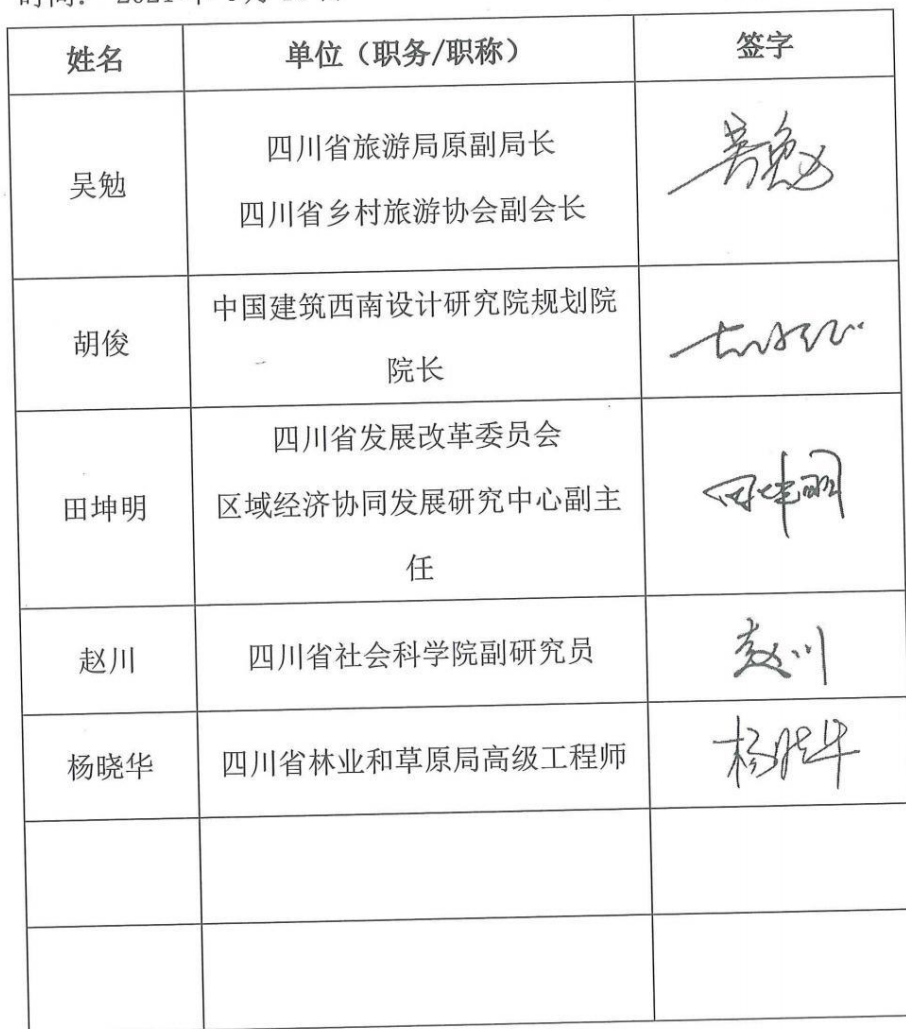 姓名 单位（职务/职称） 签字
四川省旅游局原副局长
吴勉 吴勉
四川省乡村旅游协会副会长
中国建筑西南设计研究院规划院
胡俊
院长
四川省发展改革委员会
田坤明 区域经济协同发展研究中心副主 田坤明
任
赵川 四川省社会科学院副研究员 赵川
杨晓华 四川省林业和草原局高级工程师 杨晓华